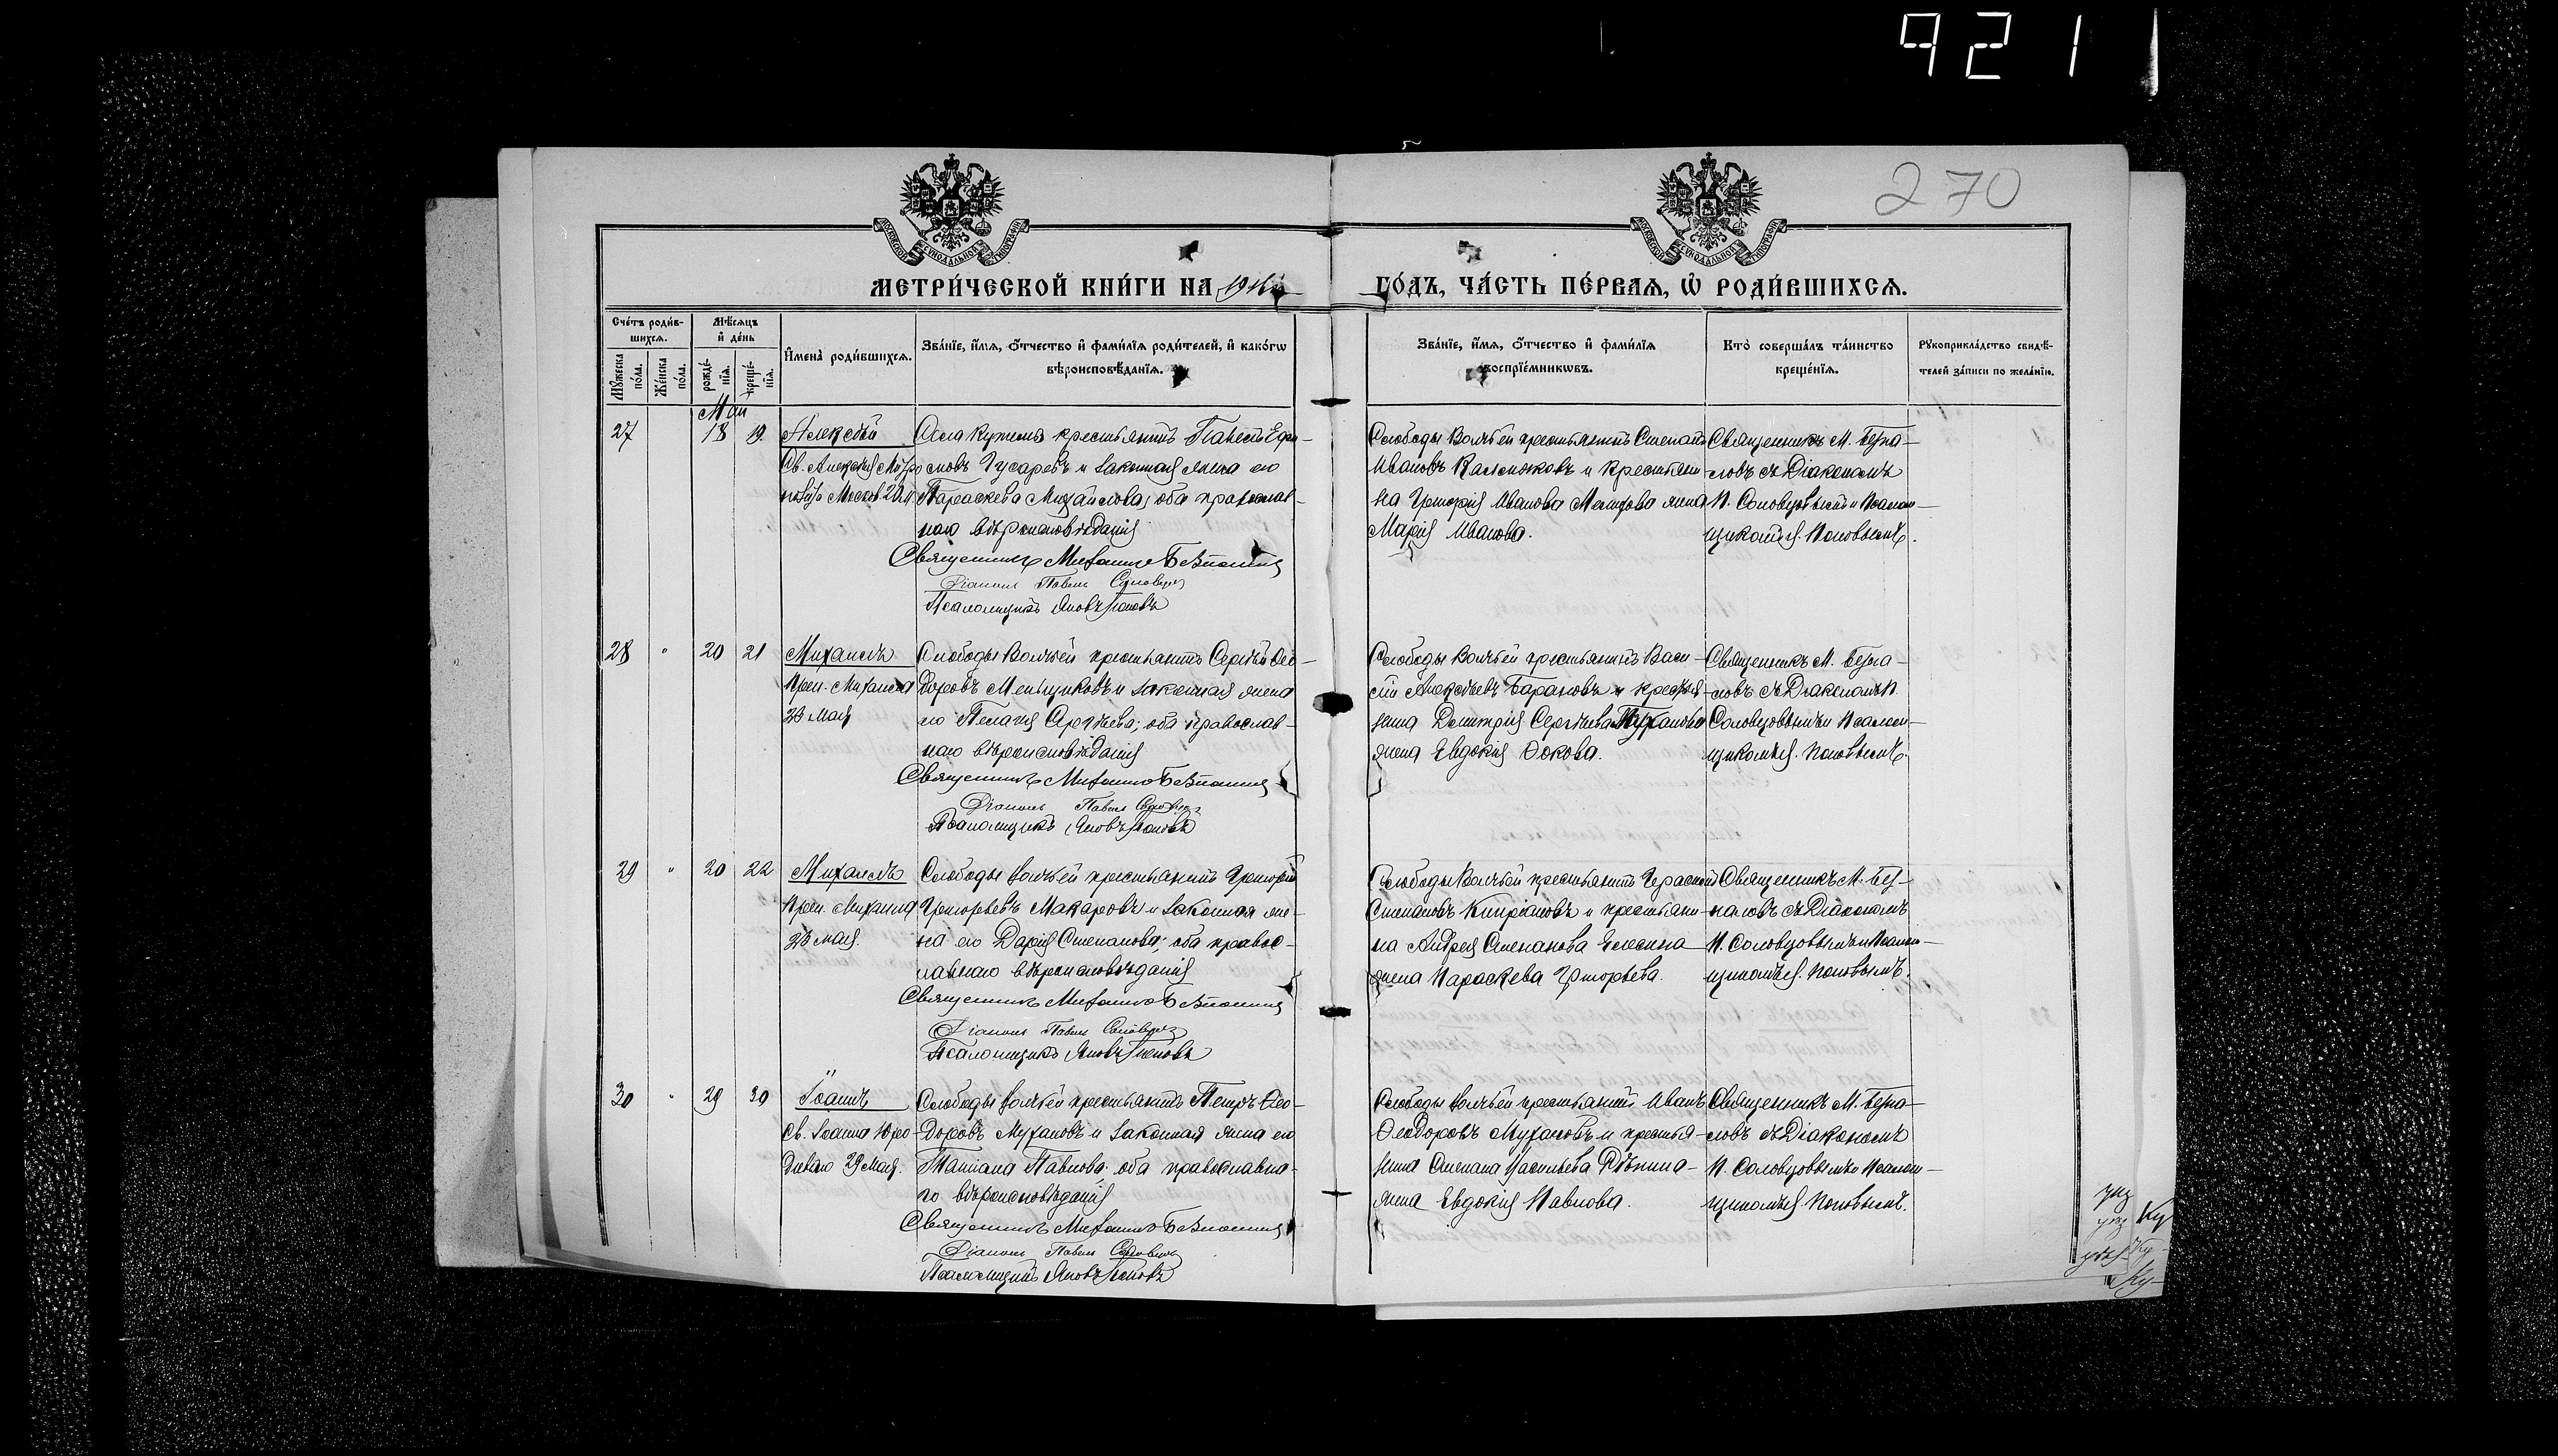 921
270
МЕТРИ́ЧЕСКОЙ КНИ́ГИ НА
ГО́ДЪ, ЧА́СТЬ ПЕ́РВАѦ, Ѡ҆ РОДИ́ВШИХСѦ.
Сче́тъ роди́в-
шихсѧ.
Мꙋ́жеска по́ла.
Же́нска по́ла.
Мѣ́сѧцъ и҆ де́нь
рожде́-нїѧ.
креще́-нїѧ.
И҆мена̀ роди́вшихсѧ.
Зва́нїе, и҆́мѧ, ѻ҆́тчество и҆ фами́лїѧ роди́телей, и҆ како́гѡ
вѣроисповѣ́данїѧ.
Зва́нїе, и҆́мѧ, ѻ҆́тчество и҆ фами́лїѧ
воспрїе́мникѡвъ.
Кто̀ соверша́лъ та́инство
креще́нїѧ.
Рꙋкоприкла́дство свидѣ́-
телей за́писи по жела́нїю.
Май
27 18 19
Алексѣй
Св. Алексія Митро
полита Москов. 20 м.
крестьянинъ Павелъ Ефи-
мовъ Гусаревъ и законная жена его
Параскева Михайлова; оба православ-
наго вѣроисповѣданія
Священникъ Михаилъ
Діаконъ Павелъ Соловцовъ
Псаломщикъ Яковъ Поповъ
Слободы Волчьей крестьянинъ Степанъ
Ивановъ и крестьяни
на Григорія Иванова жена
Марія Иванова.
Священникъ М.
съ Діакономъ
П. Соловцовымъ и Псалом-
щикомъ Я. Поповымъ.
28 " 20 21
Михаилъ
Преп. Михаила
23 Мая
Слободы Волчьей крестьянинъ Сергѣй Ѳео-
доровъ Меньщиковъ и законная жена
его Пелагія Сергѣева; оба православ-
наго вѣроисповѣданія
Священникъ Михаилъ
Діаконъ Павелъ Соловцовъ
Псаломщикъ Яковъ Поповъ
Слободы Волчьей крестьянинъ Васи-
лій Алексѣевъ Барановъ и крестья-
нина Димитрія Сергѣева
жена Евдокія
Священникъ М.
съ Діакономъ П.
Соловцовымъ и Псалом-
щикомъ Я. Поповымъ.
29 " 20 22
Михаилъ
Преп. Михаила
23 мая.
Слободы Волчьей крестьянинъ Григорій
Григорьевъ Макаровъ и законная же-
на его Дарія Степанова; оба правос-
лавнаго вѣроисповѣданія
Священникъ Михаилъ
Діаконъ Павелъ Соловцовъ
Псаломщикъ Яковъ Поповъ
Слободы Волчьей крестьянинъ Герасимъ
Степановъ Кипріановъ и крестьяни-
на Андрея Степанова жена
Параскева Григорьева.
Священникъ М.
съ Діакономъ
П. Соловцовымъ и Псалом-
щикомъ Я. Поповымъ.
30 " 29 30
Іоаннъ
Св. Іоанна Юро-
диваго 29 Мая.
Слободы Волчьей крестьянинъ Петръ Ѳео-
доровъ Мухановъ и законная жена его
Татіана Павлова; оба православна-
го вѣроисповѣданія
Священникъ Михаилъ
Діаконъ Павелъ Соловцовъ
Псаломщикъ Яковъ Поповъ
Слободы Волчьей крестьянинъ Иванъ
Ѳеодоровъ Мухановъ и крестья-
нина Степана Васильева Рѣпина
жена Евдокія Павлова.
Священникъ М.
съ Діакономъ
П. Соловцовымъ и Псалом-
щикомъ Я. Поповымъ.